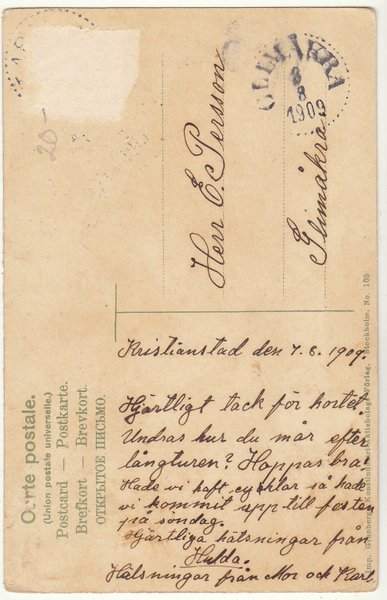 GLIMÅKRA
8
8
1909
20-
Herr E. Persson
Glimåkra
Carte postale.
(Union postale universelle.)
Postcard — Postkarte.
Brefkort — Brevkort.
ОТКРЫТОЕ ПИСЬМО.
Kristianstad den 7.8.1909.
Hjärtligt tack för kortet.
Undras hur du mår efter
långturen? Hoppas bra!
Hade vi haft cycklar så hade
vi kommit upp till festen
på söndag.
Hjärtliga hälsningar från
Hulda.
Hälsningar från Mor och Karl
Stockholm. No. 105